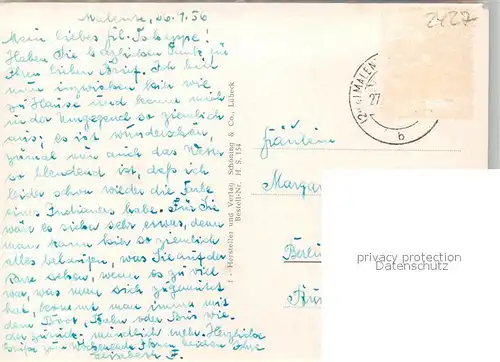 Malente, 26.7.56
Mein liebes Frl. Scheppe!
Haben Sie herzlichen Dank für
Ihren lieben Brief. Ich bin
nun inzwischen hier wie
zu Hause und kenne mich
in der Umgegend so ziemlich
aus; es ist wunderschön,
zumal nun auch das Wetter
so blendend ist, daß ich
leider schon wieder die Farbe
eines Indianers habe. Für Sie
wäre es sicher sehr etwas, denn
man kann hier so ziemlich
alles belaufen, was Sie auf der
Karte sehen, wenn es zu viel
war, was man sich zugemutet
hat, kommt man immer mit
dem Boot, Bahn oder Bus wie-
der zurück. mündlich mehr. Herzliche
Grüße zum Wochenende Ihnen beiden Ihre
Elisabeth F.
f - Hersteller und Verlag Schöning & Co., Lübeck
Bestell-Nr. H. S. 154
2427
MALEN
27
b
Fräulein
Margar
Berlin
privacy protection
Datenschutz